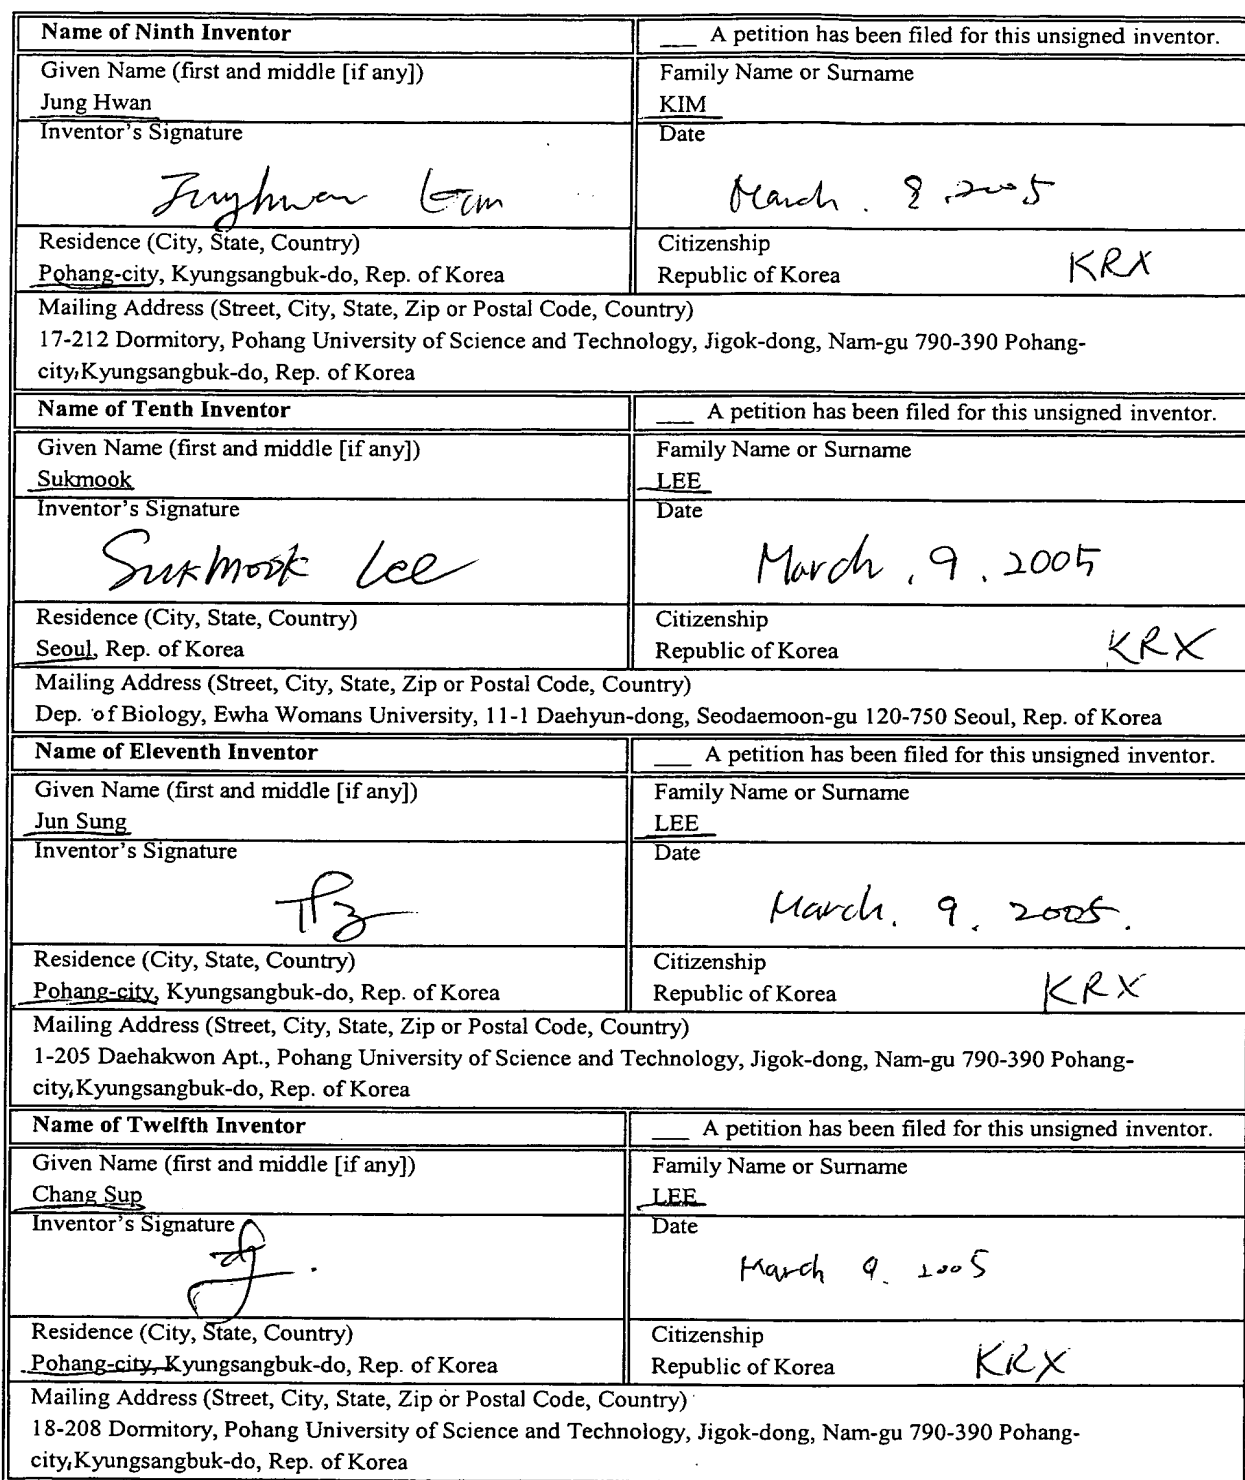 Name of Ninth Inventor
___ A petition has been filed for this unsigned inventor.
Given Name (first and middle [if any])
Family Name or Surname
Jung Hwan
KIM
Inventor's Signature
Date
March. 8, 2005
Residence (City, State, Country)
Citizenship
Pohang-city, Kyungsangbuk-do, Rep. of Korea
Republic of Korea
KRX
Mailing Address (Street, City, State, Zip or Postal Code, Country)
17-212 Dormitory, Pohang University of Science and Technology, Jigok-dong, Nam-gu 790-390 Pohang-
city, Kyungsangbuk-do, Rep. of Korea
Name of Tenth Inventor
___ A petition has been filed for this unsigned inventor.
Given Name (first and middle [if any])
Family Name or Surname
Sukmook
LEE
Inventor's Signature
Date
Sukmook Lee
March, 9, 2005
Residence (City, State, Country)
Citizenship
Seoul, Rep. of Korea
Republic of Korea
KRX
Mailing Address (Street, City, State, Zip or Postal Code, Country)
Dep. of Biology, Ewha Womans University, 11-1 Daehyun-dong, Seodaemoon-gu 120-750 Seoul, Rep. of Korea
Name of Eleventh Inventor
___ A petition has been filed for this unsigned inventor.
Given Name (first and middle [if any])
Family Name or Surname
Jun Sung
LEE
Inventor's Signature
Date
March. 9. 2005.
Residence (City, State, Country)
Citizenship
Pohang-city, Kyungsangbuk-do, Rep. of Korea
Republic of Korea
KRX
Mailing Address (Street, City, State, Zip or Postal Code, Country)
1-205 Daehakwon Apt., Pohang University of Science and Technology, Jigok-dong, Nam-gu 790-390 Pohang-
city, Kyungsangbuk-do, Rep. of Korea
Name of Twelfth Inventor
___ A petition has been filed for this unsigned inventor.
Given Name (first and middle [if any])
Family Name or Surname
Chang Sup
LEE
Inventor's Signature
Date
March 9. 2005
Residence (City, State, Country)
Citizenship
Pohang-city, Kyungsangbuk-do, Rep. of Korea
Republic of Korea
KRX
Mailing Address (Street, City, State, Zip or Postal Code, Country)
18-208 Dormitory, Pohang University of Science and Technology, Jigok-dong, Nam-gu 790-390 Pohang-
city, Kyungsangbuk-do, Rep. of Korea